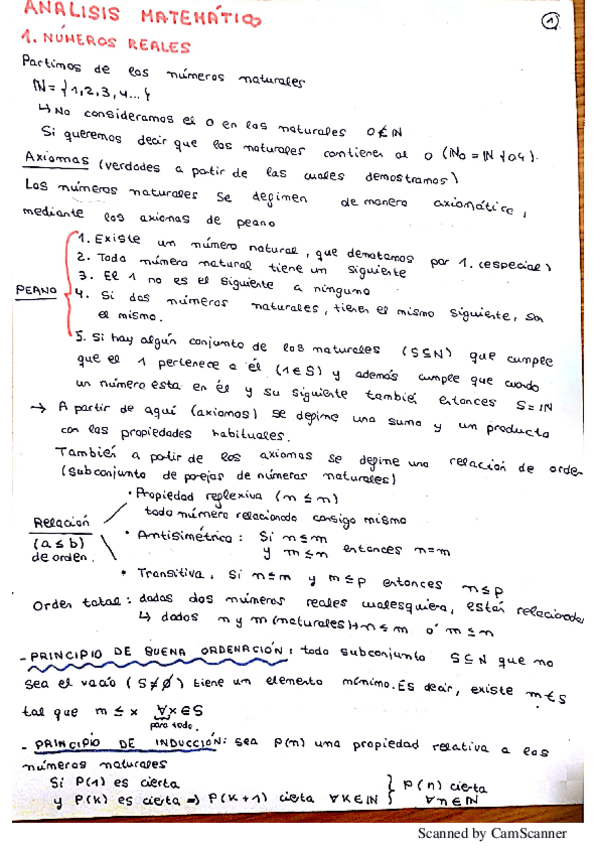 ANALISIS MATEMÁTICO
1
1. NÚMEROS REALES
Partimos de los números naturales
IN = {1,2,3,4...}
↳ No consideramos el 0 en los naturales 0∉IN
Si queremos decir que los naturales contienen al 0 (IN₀ = IN ∪{0}).
Axiomas (verdades a partir de las cuales demostramos)
Los números naturales se definen de manera axiomática,
mediante los axiomas de peano
1. Existe un número natural, que denotamos por 1. (especial)
2. Todo número natural tiene un siguiente
3. El 1 no es el siguiente a ninguno
PEANO
4. Si dos números naturales, tienen el mismo siguiente, son
el mismo.
5. Si hay algún conjunto de los naturales (S⊆N) que cumple
que el 1 pertenece a él (1∈S) y además cumple que cuando
un número esta en él y su siguiente también entonces S=IN
→ A partir de aquí (axiomas) se define una suma y un producto
con las propiedades habituales.
También a partir de los axiomas se define una relación de orden
(subconjunto de parejas de números naturales)
• Propiedad reflexiva (n ≤ n)
todo número relacionado consigo mismo
Relación
(a ≤ b)
de orden.
• Antisimétrica: Si n ≤ m
y m ≤ n entonces n=m
• Transitiva. Si n ≤ m y m ≤ p entonces n ≤ p
Orden total: dados dos números reales cualesquiera, están relacionados
↳ dados n y m (naturales) n ≤ m o' m ≤ n
- PRINCIPIO DE BUENA ORDENACIÓN: todo subconjunto S⊆N que no
sea el vacío (S≠∅) tiene un elemento mínimo. ES decir, existe m∈S
tal que m ≤ x ∀x∈S
para todo.
- PRINCIPIO DE INDUCCIÓN: sea P(n) una propiedad relativa a los
números naturales
Si P(1) es cierta
y P(K) es cierta ⇒ P(K+1) cierta ∀K∈IN } P(n) cierta
∀n∈IN
Scanned by CamScanner